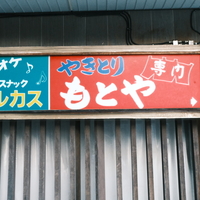 オケ
スナック
ルカス
やきとり
もとや
専門